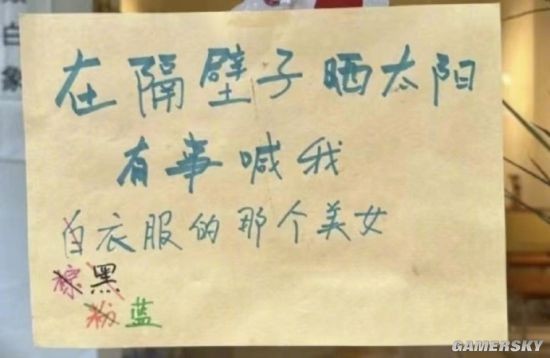 白象
在隔壁子晒太阳
有事喊我
白衣服的那个美女
棕黑
粉蓝
GAMERSKY